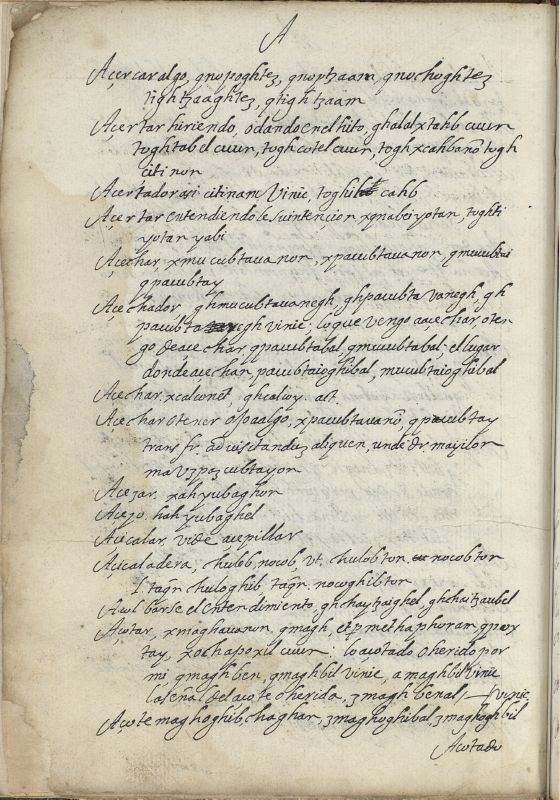 A
Açercar algo, qnopoghtez, qnoptzaam qnochoghtez
tightzaaghtez, qtightzaam
Acertar hiriendo, o dando en el hito, ghalal xtahb cuur
toghtabel cuur, togh cotel cuur, togh xcahbanõ togh
citi non
Acertador asi citinam Vinic, toghil cahb
Açertar entendiendo le su intençion, xqnabei yotan, toghti
yotan yabi
Açechar, xmucubtauanon, xpacubtauanon, qmucubtai
qpacubtay
Açechador, ghmucubtauanegh, ghpacubtavanegh, gh
pacubta egh vinic; lo que vengo a açechar o ten
go de açechar qpacubtabal, qmucubtabal; el lugar
donde açechan, pacubtaioghibal, mucubtaioghibal
Açechar, xcalconet, ghcalioy. act.
Açechar o tener ojo a algo, xpacubtauanõ, qpacubtay
transfr. ad visitandũ aliquen, unde dr mayilon
ma vzpas cubtayon
Açezar. xah yubaghon
Acezo. hah yubaghel
Açicalar, vide açepillar
Açicaladera; chulob, nocob, vt, chulobton. nocobton
l. tagñ chuloghib, tagñ. nocoghibton
Acobbarse el entendimiento, ghchaytzaighel, ghchaitzaubel
Açotar, xmaghauanon. qmagh, et p methaphoram qpox
tay, xochapoxil cuun: lo acotado o herido por
mi, qmaghben, qmaghbil vinic, a maghbil vinic
la señal del açote o herida, zmaghbenal,
vinic
Açote maghoghib, chaghan, zmaghoghibal, zmaghoghbil
Acotado